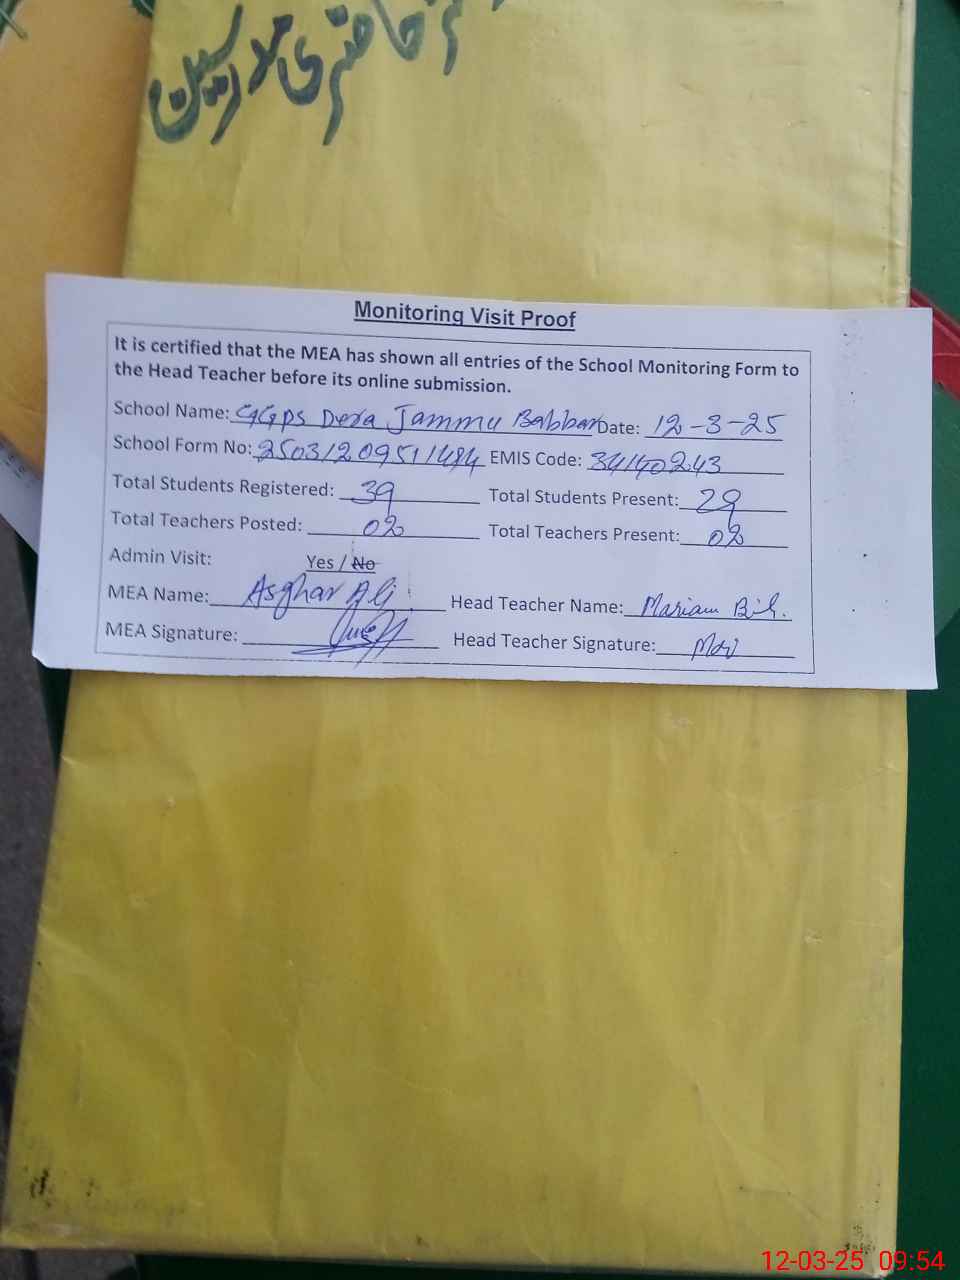 رجسٹر حاضری ملازمین
Monitoring Visit Proof
It is certified that the MEA has shown all entries of the School Monitoring Form to
the Head Teacher before its online submission.
School Name: GGPS Dera Jammu Babbar Date: 12-3-25
School Form No: 25031209511484 EMIS Code: 34140243
Total Students Registered: 39 Total Students Present: 29
Total Teachers Posted: 02 Total Teachers Present: 02
Admin Visit: Yes / No
MEA Name: Asghar Ali Head Teacher Name: Mariam Bibi.
MEA Signature: Head Teacher Signature:
12-03-25 09:54